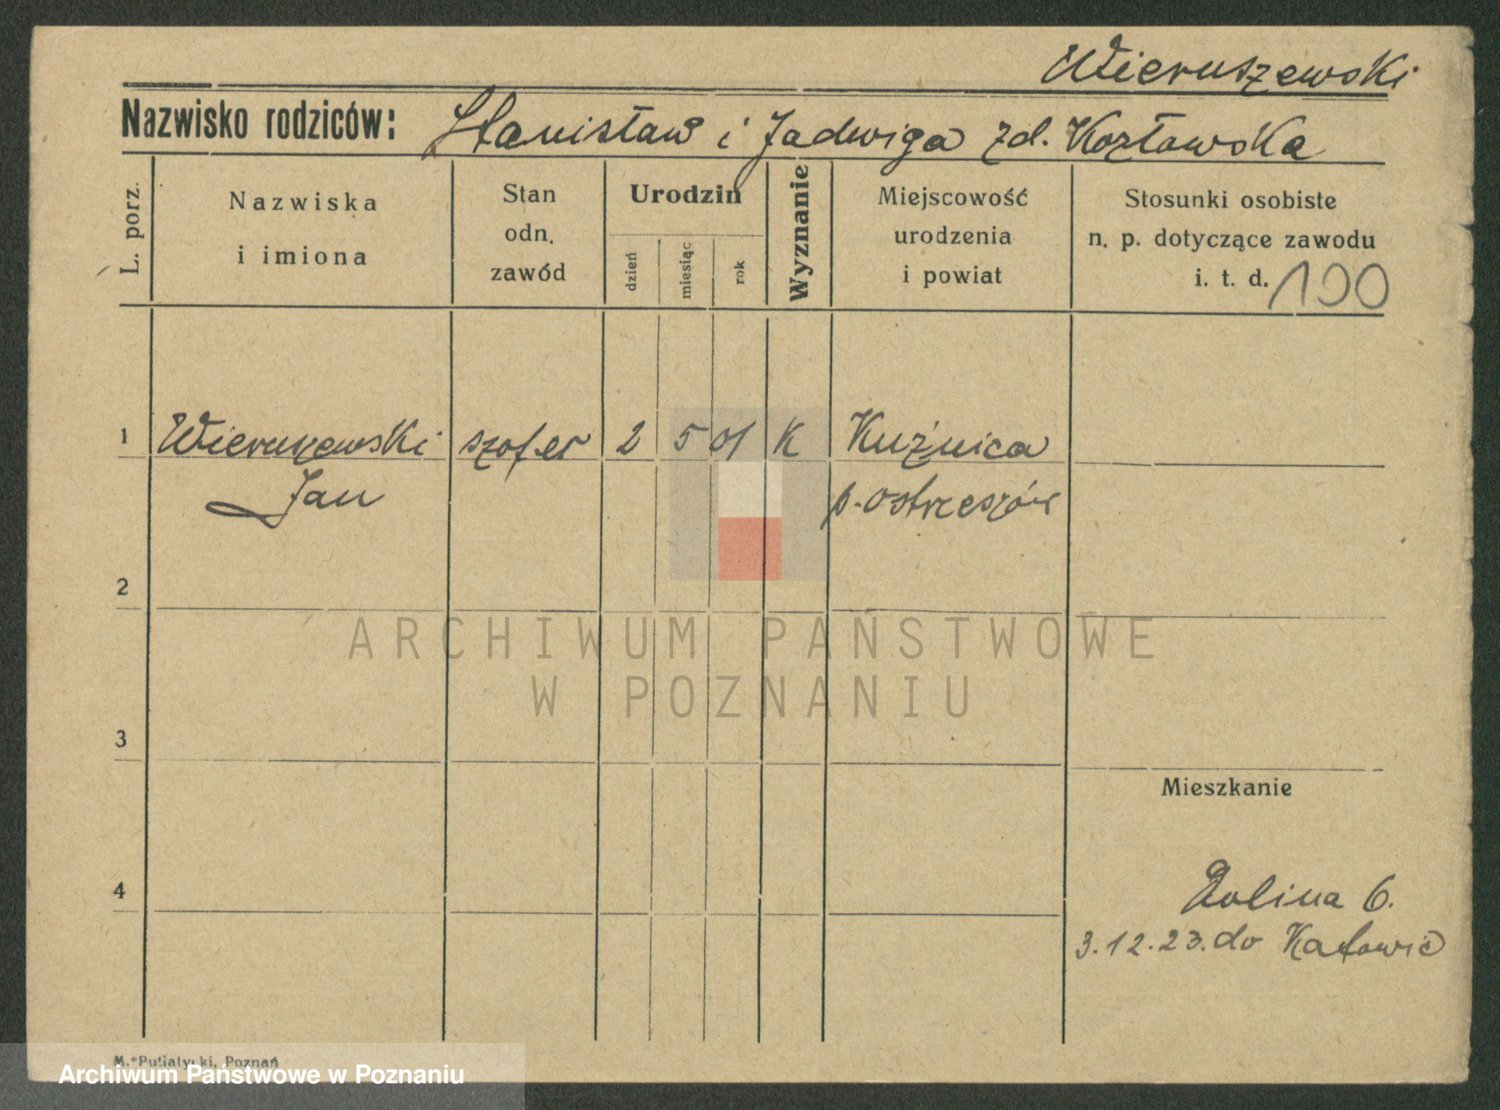 Wieruszewski
Nazwisko rodziców: Stanisław i Jadwiga zd. Kozłowska
L. porz.
Nazwiska
i imiona
Stan
odn.
zawód
Urodzin
dzień
miesiąc
rok
Wyznanie
Miejscowość
urodzenia
i powiat
Stosunki osobiste
n. p. dotyczące zawodu
i. t. d. 100
1 Wieruszewski szofer 2 5 01 K Kuźnica
Jan p. Ostrzeszów
2
ARCHIWUM PAŃSTWOWE
W POZNANIU
3
Mieszkanie
4
Dolina 6.
3.12.23. do Katowic
M. Putiatycki, Poznań
Archiwum Państwowe w Poznaniu